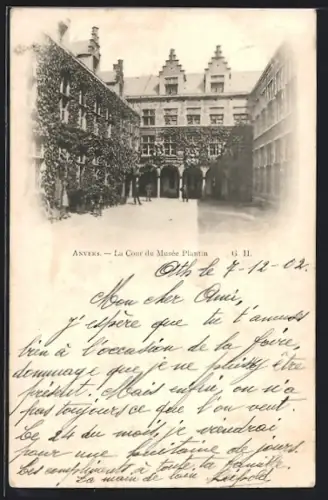 ANVERS. — La Cour du Musée Plantin G. H.
Ath le 7-12-02.
Mon cher Ami,
J'espère que tu t'amuses
bien à l'occasion de la foire,
dommage que je ne puisse être
présent. Mais enfin, on n'a
pas toujours ce que l'on veut.
Le 24 du mois, je viendrai
pour une huitaine de jours.
Des compliments à toute la famille
La main de loin Léopold